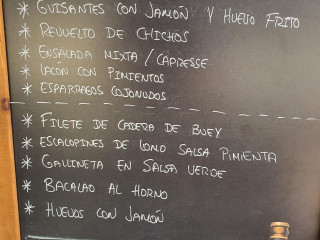 * GUISANTES CON JAMÓN Y HUEVO FRITO
* REVUELTO DE CHICHOS
* ENSALADA MIXTA / CAPRESSE
* LACÓN CON PIMIENTOS
* ESPARRAGOS COJONUDOS
* FILETE DE CADERA DE BUEY
* ESCALOPINES DE LOMO SALSA PIMIENTA
* GALLINETA EN SALSA VERDE
* BACALAO AL HORNO
* HUEVOS CON JAMÓN